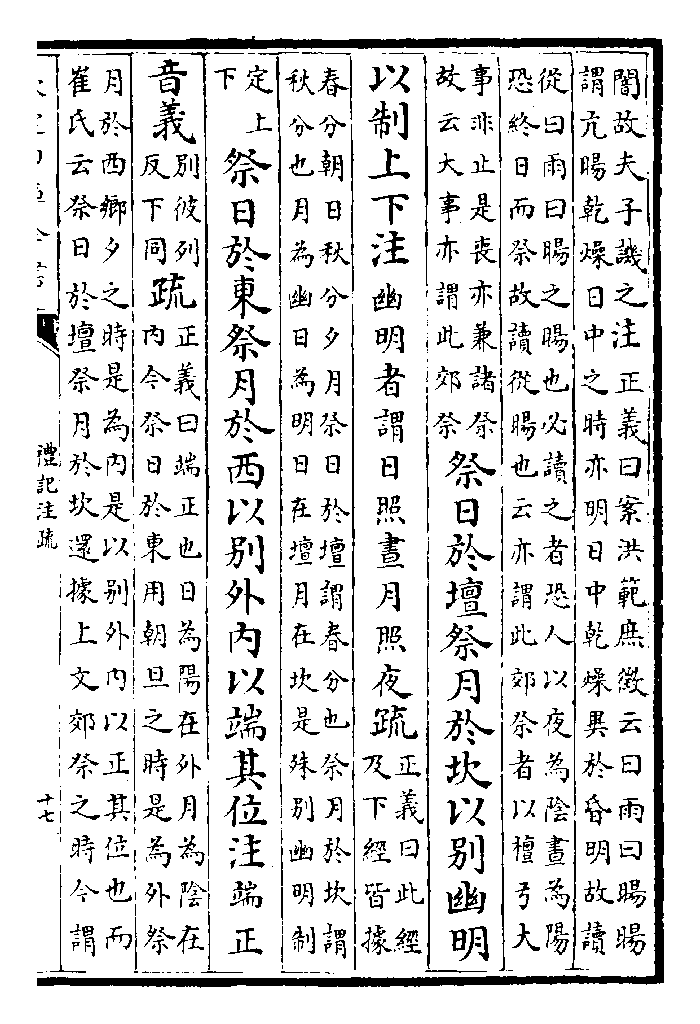 闇故夫子譏之注正義曰案洪範庶徵云曰雨曰暘暘
謂亢暘乾燥日中之時亦明日中乾燥異於昏明故讀
從曰雨曰暘之暘也必讀之者恐人以夜為陰晝為陽
恐終日而祭故讀從暘也云亦謂此郊祭者以檀弓大
事非止是喪亦兼諸祭
故云大事亦謂此郊祭
祭日於壇祭月於坎以別幽明
以制上下注幽明者謂日照晝月照夜疏
正義曰此經
及下經皆據
春分朝日秋分夕月祭日於壇謂春分也祭月於坎謂
秋分也月為幽日為明日在壇月在坎是殊別幽明制
定上
下
祭日於東祭月於西以別外內以端其位注端正
音義
別彼列
反下同
疏
正義曰端正也日為陽在外月為陰在
內今祭日於東用朝旦之時是為外祭
月於西鄉夕之時是為內是以別外內以正其位也而
崔氏云祭日於壇祭月於坎還據上文郊祭之時今謂
禮記注疏
十七